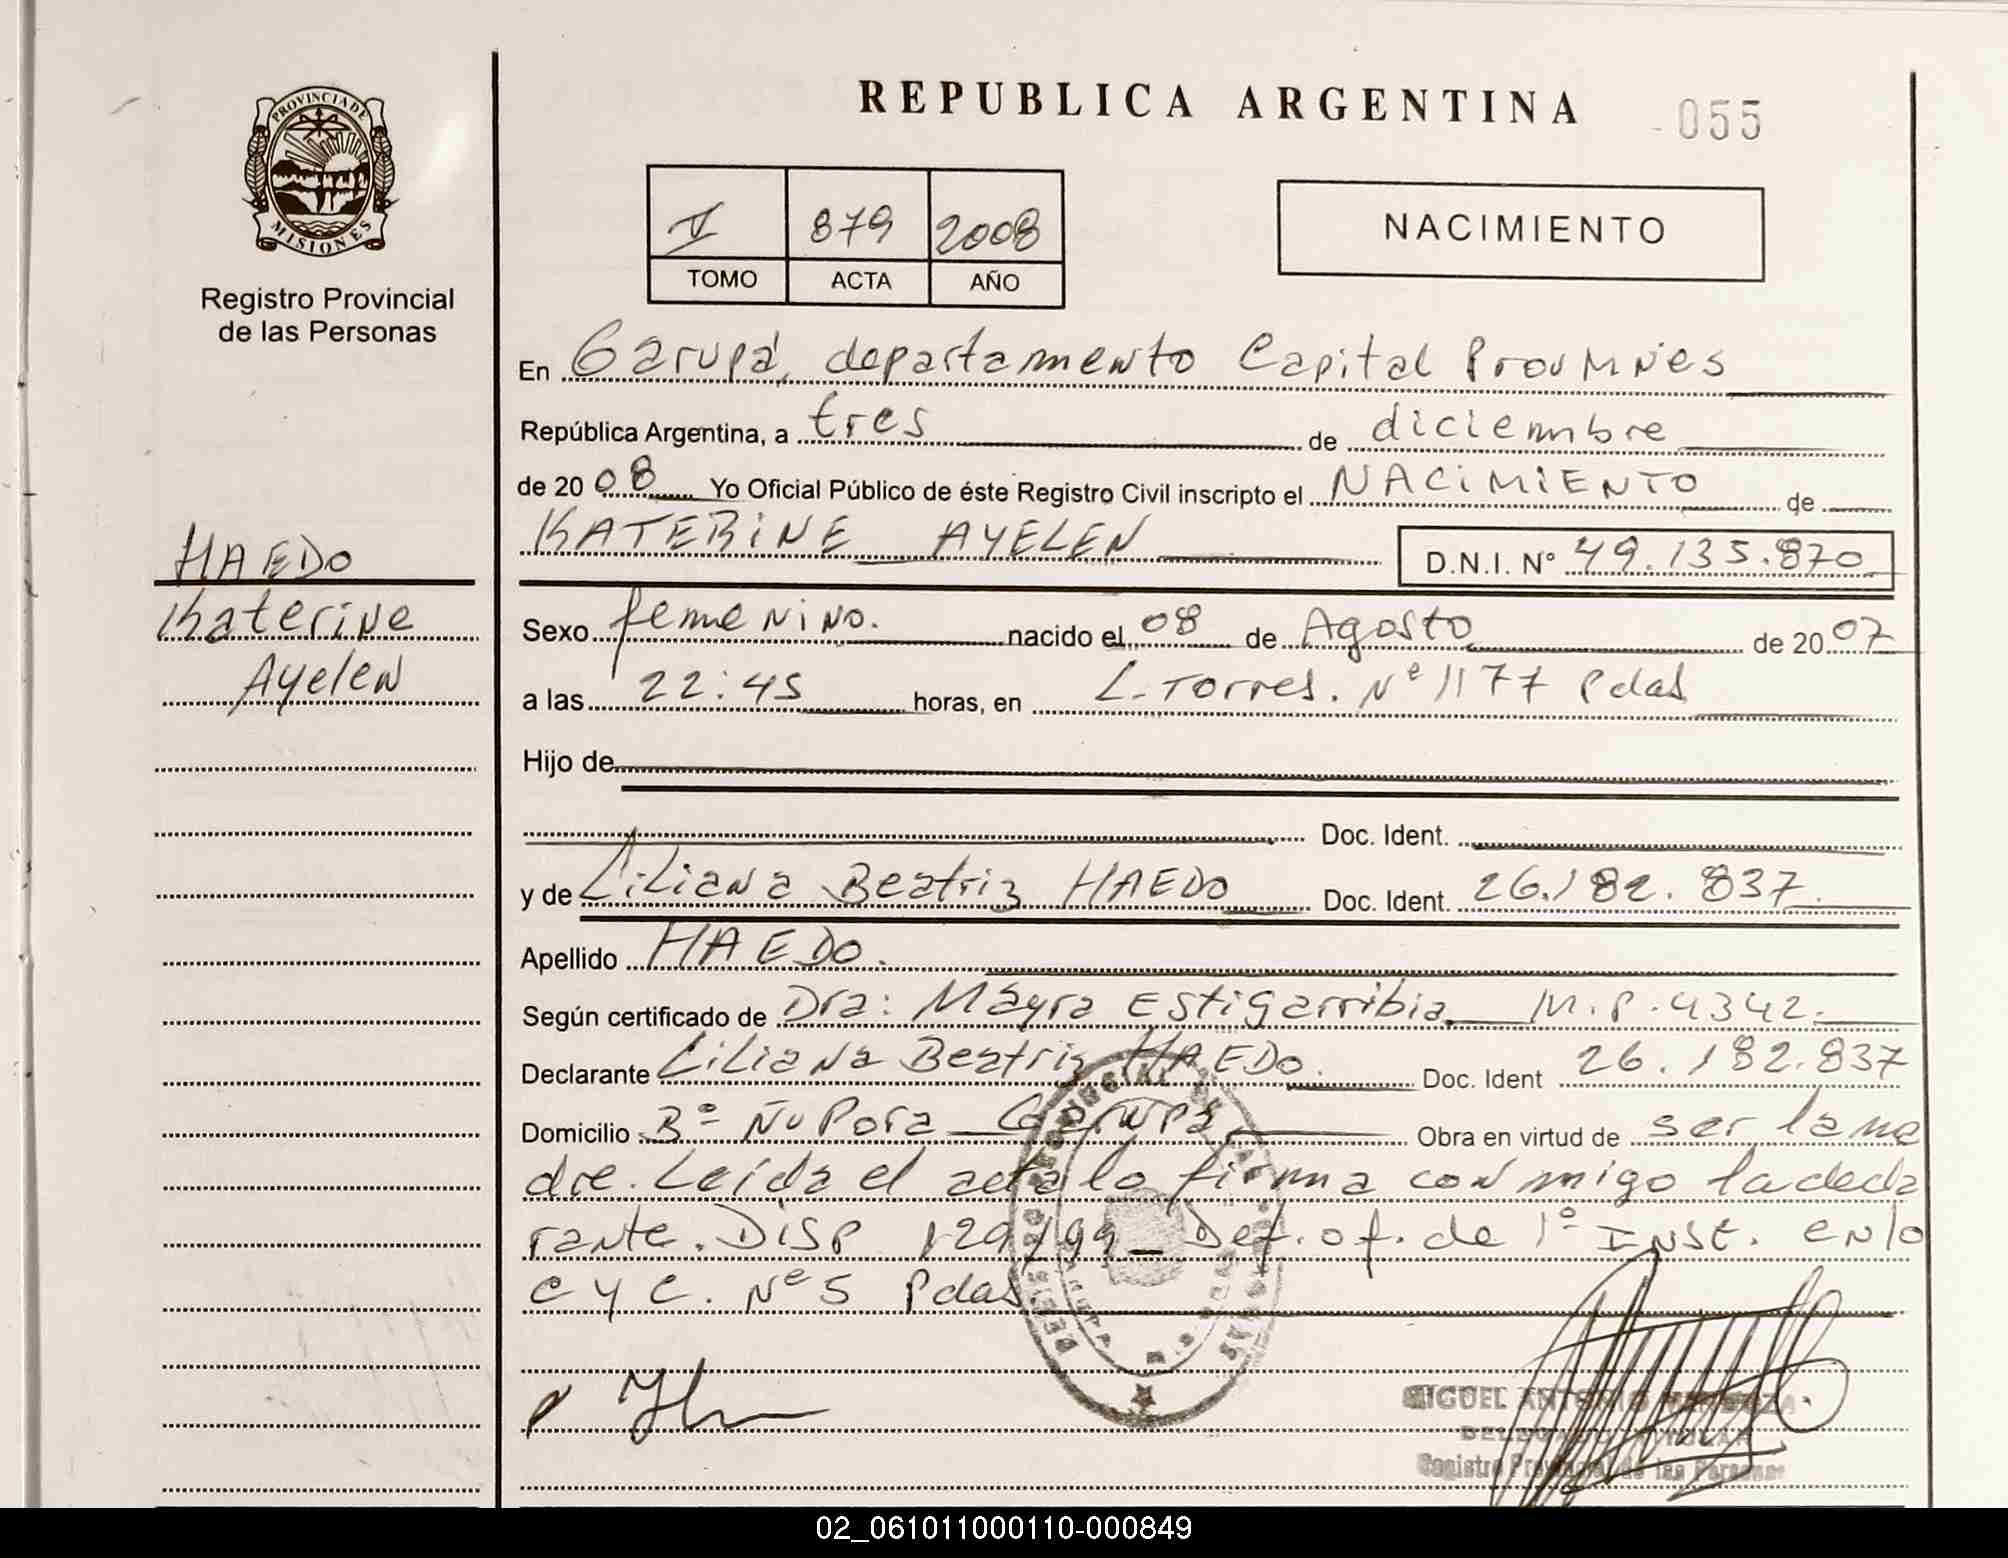 REPUBLICA ARGENTINA
055
PROVINCIA DE
MISIONES
Registro Provincial
de las Personas
879 2008
TOMO ACTA AÑO
NACIMIENTO
En Garupá, departamento Capital Prov Mnes
República Argentina, a tres de diciembre
de 2008 Yo Oficial Público de éste Registro Civil inscripto el NACIMIENTO de
KATERINE AYELEN D.N.I. Nº 49.135.870
HAEDO
Katerine
Ayelen
Sexo femenino. nacido el 08 de Agosto de 2007
a las 22:45 horas, en L. Torres. Nº 1177 Pdas
Hijo de
Doc. Ident.
y de Liliana Beatriz HAEDO Doc. Ident. 26.182.837
Apellido HAEDO.
Según certificado de Dra: Mayra Estigarribia M.P. 4342.
Declarante Liliana Beatriz HAEDO. Doc. Ident 26.182.837
Domicilio Bº Ñu Pora Garupá Obra en virtud de ser la ma
dre. Leída el acta lo firma conmigo la decla
rante. Disp 129/99 Def. of. de 1º INSt. en lo
C y C. Nº 5 Pdas
MIGUEL ANTONIO MENDOZA
DELEGADO TITULAR
Registro Provincial de las Personas
02_061011000110-000849